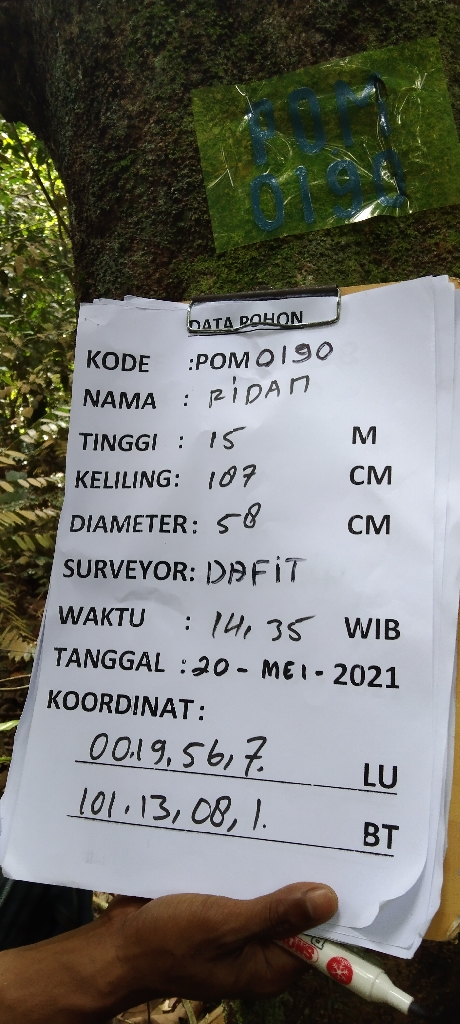 POM
0190
DATA POHON
KODE :POM 0190
NAMA : RIDAN
TINGGI : 15 M
KELILING: 187 CM
DIAMETER: 58 CM
SURVEYOR: DAFIT
WAKTU : 14,35 WIB
TANGGAL :20 - MEI - 2021
KOORDINAT:
00.19,56,7. LU
101.13,08,1. BT